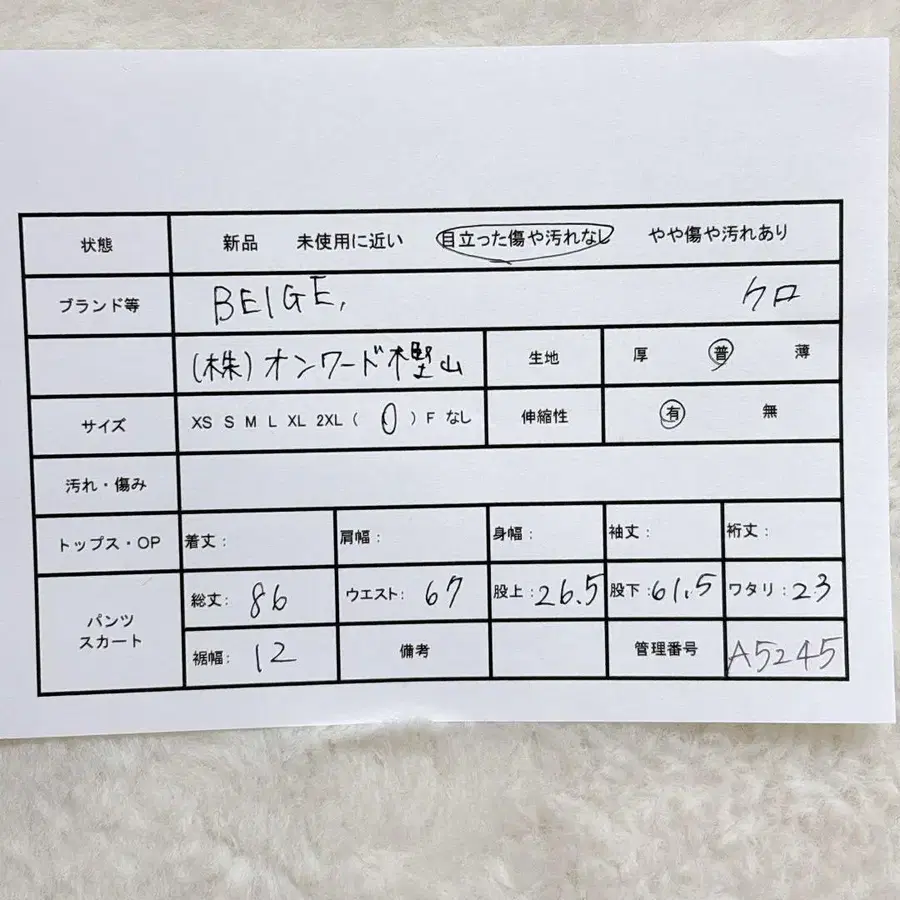 状態 新品 未使用に近い 目立った傷や汚れなし やや傷や汚れあり
ブランド等 BEIGE, クロ
(株)オンワード樫山 生地 厚 普 薄
サイズ XS S M L XL 2XL ( 0 ) F なし 伸縮性 有 無
汚れ・傷み
トップス・OP 着丈: 肩幅: 身幅: 袖丈: 裄丈:
パンツ スカート 総丈: 86 ウエスト: 67 股上: 26.5 股下: 61.5 ワタリ: 23
裾幅: 12 備考 管理番号 A5245